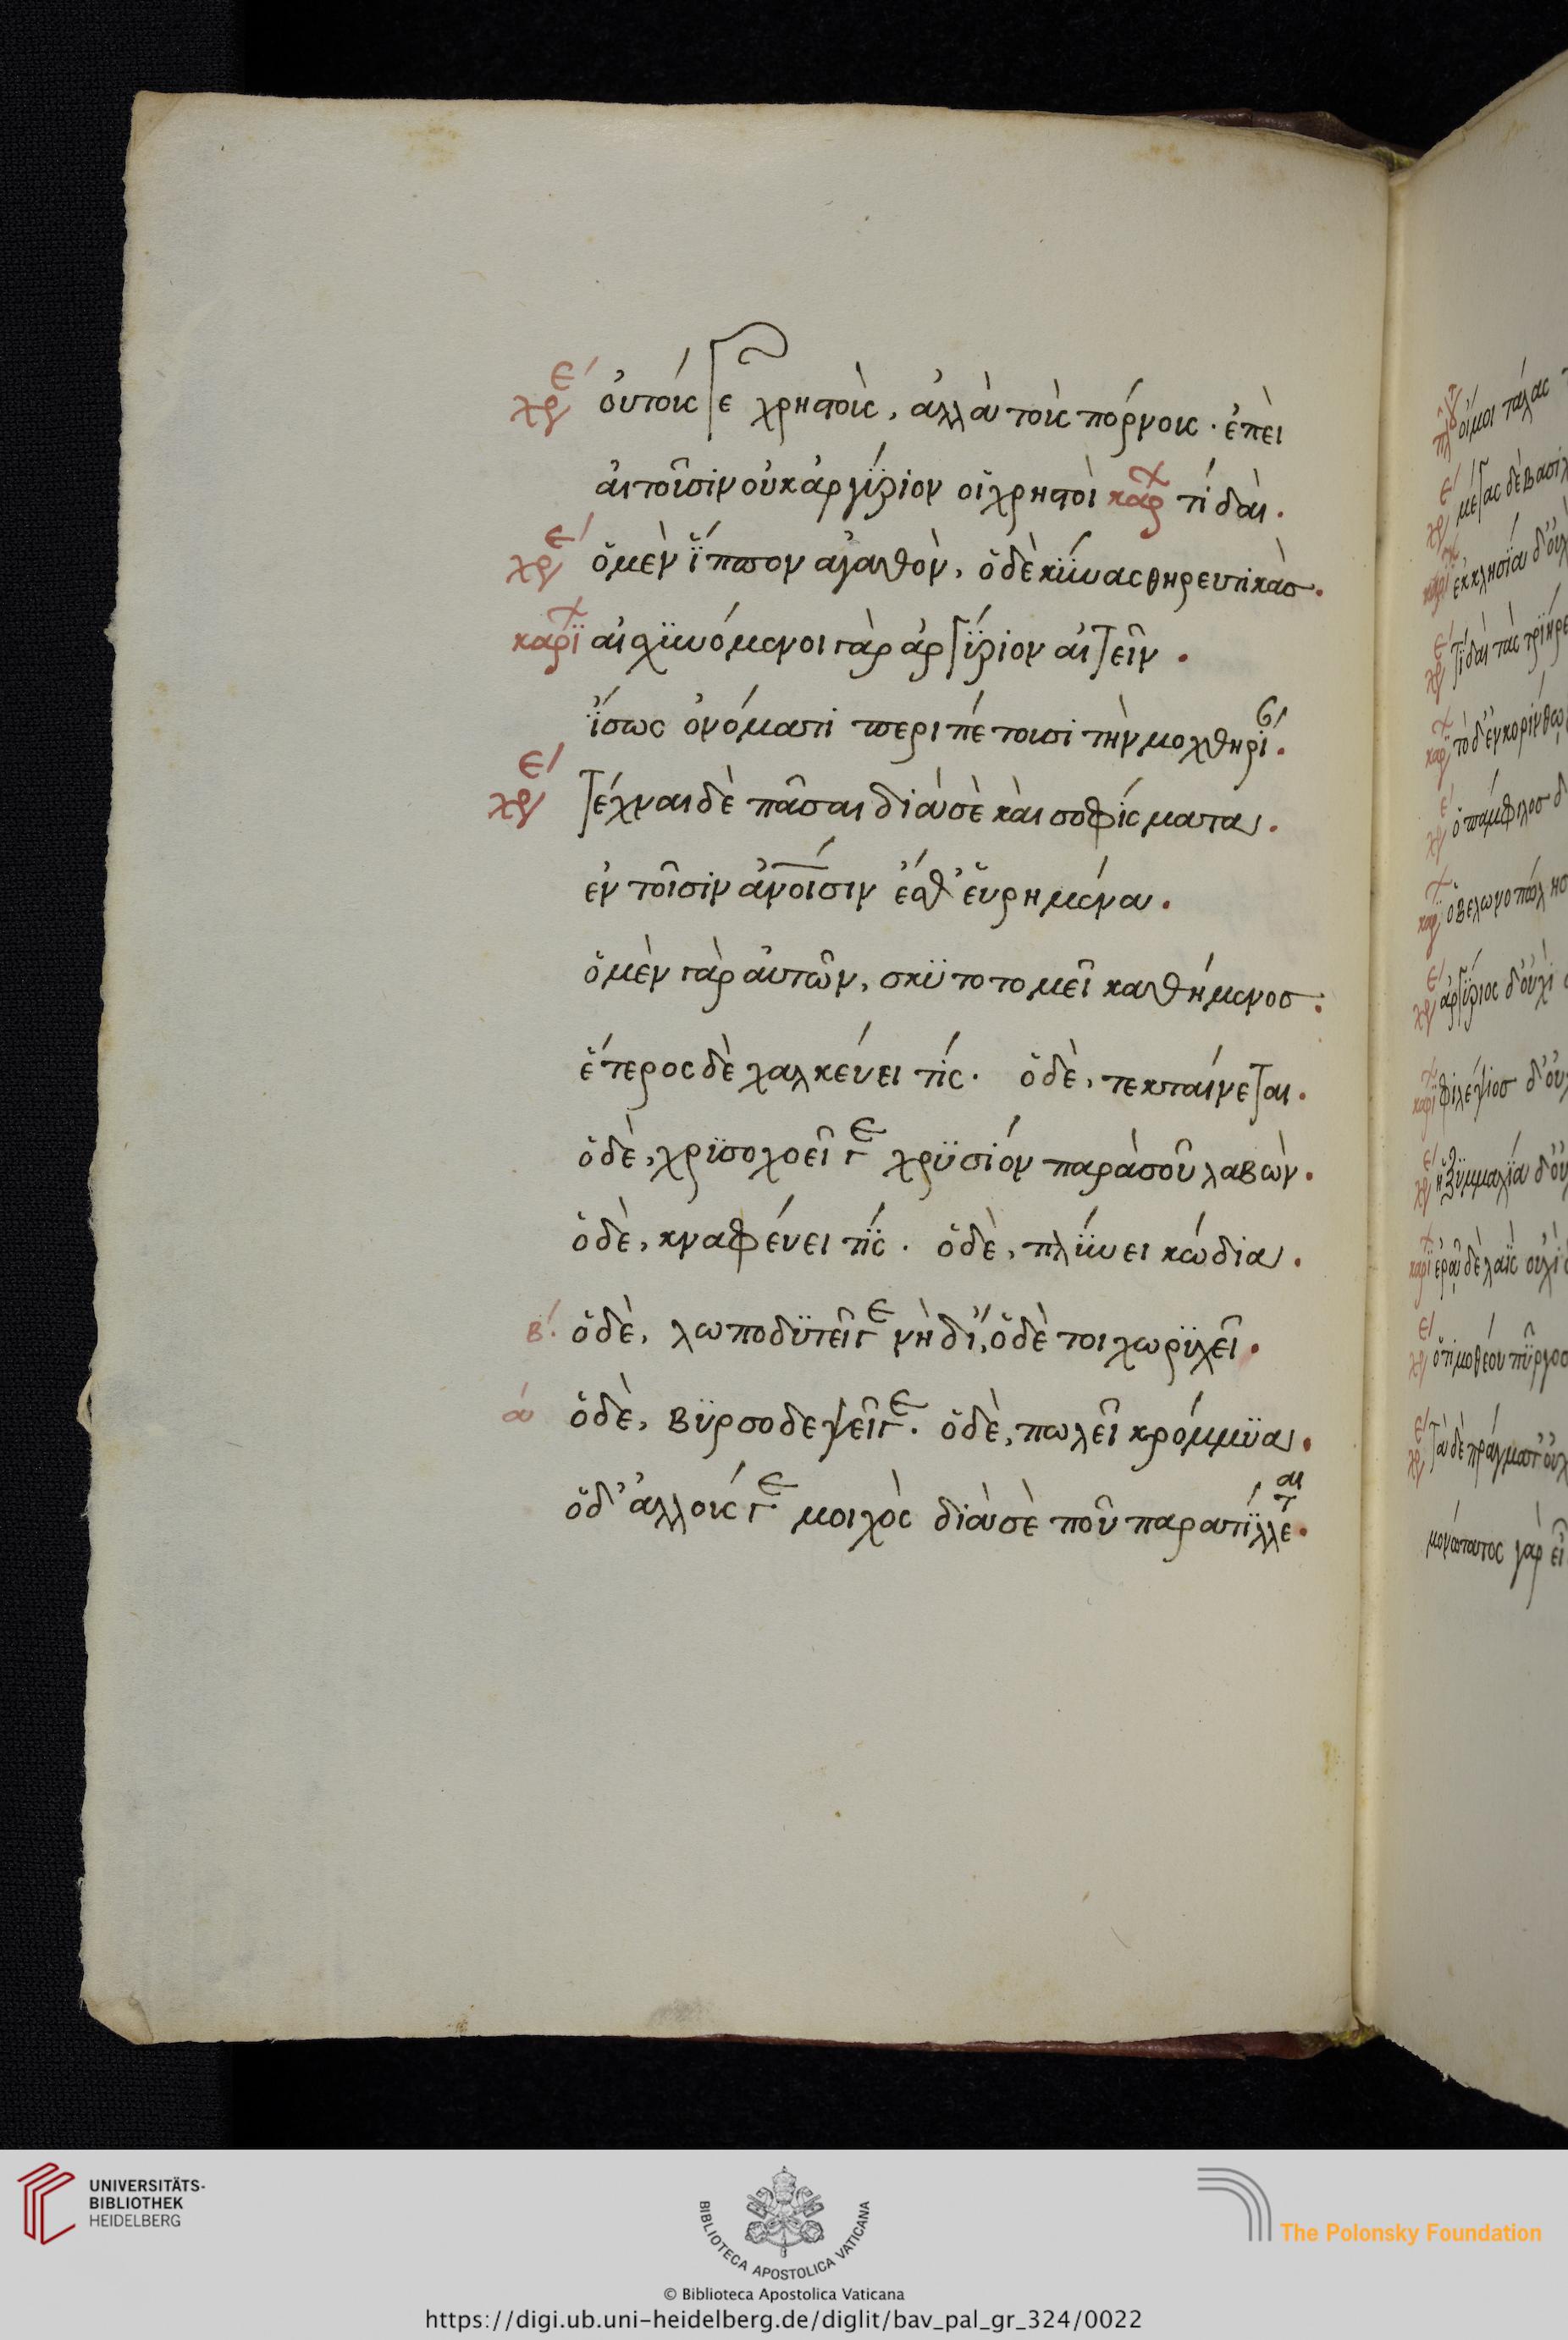 χρε οὐτοίς γε χρηστοὶς, ἀλλὰ τοὶς πόρνοις. ἐπεὶ
αἰτοῦσιν οὐκ ἀργύριον οἱ χρηστοὶ καρ τί δαί.
χρε ὁ μὲν ἵππον ἀγαθὸν, ὁ δὲ κύνας θηρευτικὰσ.
καρϊ αἰσχϋνόμενοι γὰρ ἀργΰριον αἰτεῖν.
ἴσως ὀνόματι περιπέττουσι τὴν μοχθηρί.
χρε τέχναι δὲ πᾶσαι διὰ σὲ καὶ σοφίσματα.
ἐν τοῖσιν ἀνοισιν ἐσθ' εὑρημένα.
ὁ μὲν γὰρ αὐτῶν, σκϋτοτομεῖ καθήμενοσ.
ἕτερος δὲ χαλκεύει τίς. ὁ δὲ, τεκταίνεται.
ὁ δὲ, χρϋσοχοεῖ γε χρϋσίον παρὰ σοῦ λαβὼν.
ὁ δὲ, κναφεύει τίς. ὁ δὲ, πλΰνει κώδια.
β. ὁ δὲ, λωποδϋτεῖ γε νὴ δί', ὁ δὲ τοιχωρϋχεῖ.
ἀ ὁ δὲ, βϋρσοδεψεῖ γε. ὁ δὲ, πωλεῖ κρόμμϋα.
ὁ δ' ἁλλοίς γε μοιχὸς διὰ σὲ ποῦ παρατίλλεται.
οἴμοι τάλας
μέγας δὲ βασιλ
ἐκκλησία δ' οὐχ
τί δαὶ τὰς τριήρε
τὸ δ' ἐν κορίνθω
ὁ πάμφιλοσ δ
ὁ βελωνοπώλησ
ἀργύριος δ' οὐχὶ
φιλέψιοσ δ' οὐ
ἡ ξϋμμαχία δ' οὐ
ἐρᾷ δὲ λαῒς οὐχὶ
ὁ τιμοθέου πύργοσ
τὰ δὲ πράγματ' οὐχ
μονώτατος γὰρ εἶ
UNIVERSITÄTS-
BIBLIOTHEK
HEIDELBERG
BIBLIOTECA APOSTOLICA VATICANA
The Polonsky Foundation
© Biblioteca Apostolica Vaticana
https://digi.ub.uni-heidelberg.de/diglit/bav_pal_gr_324/0022